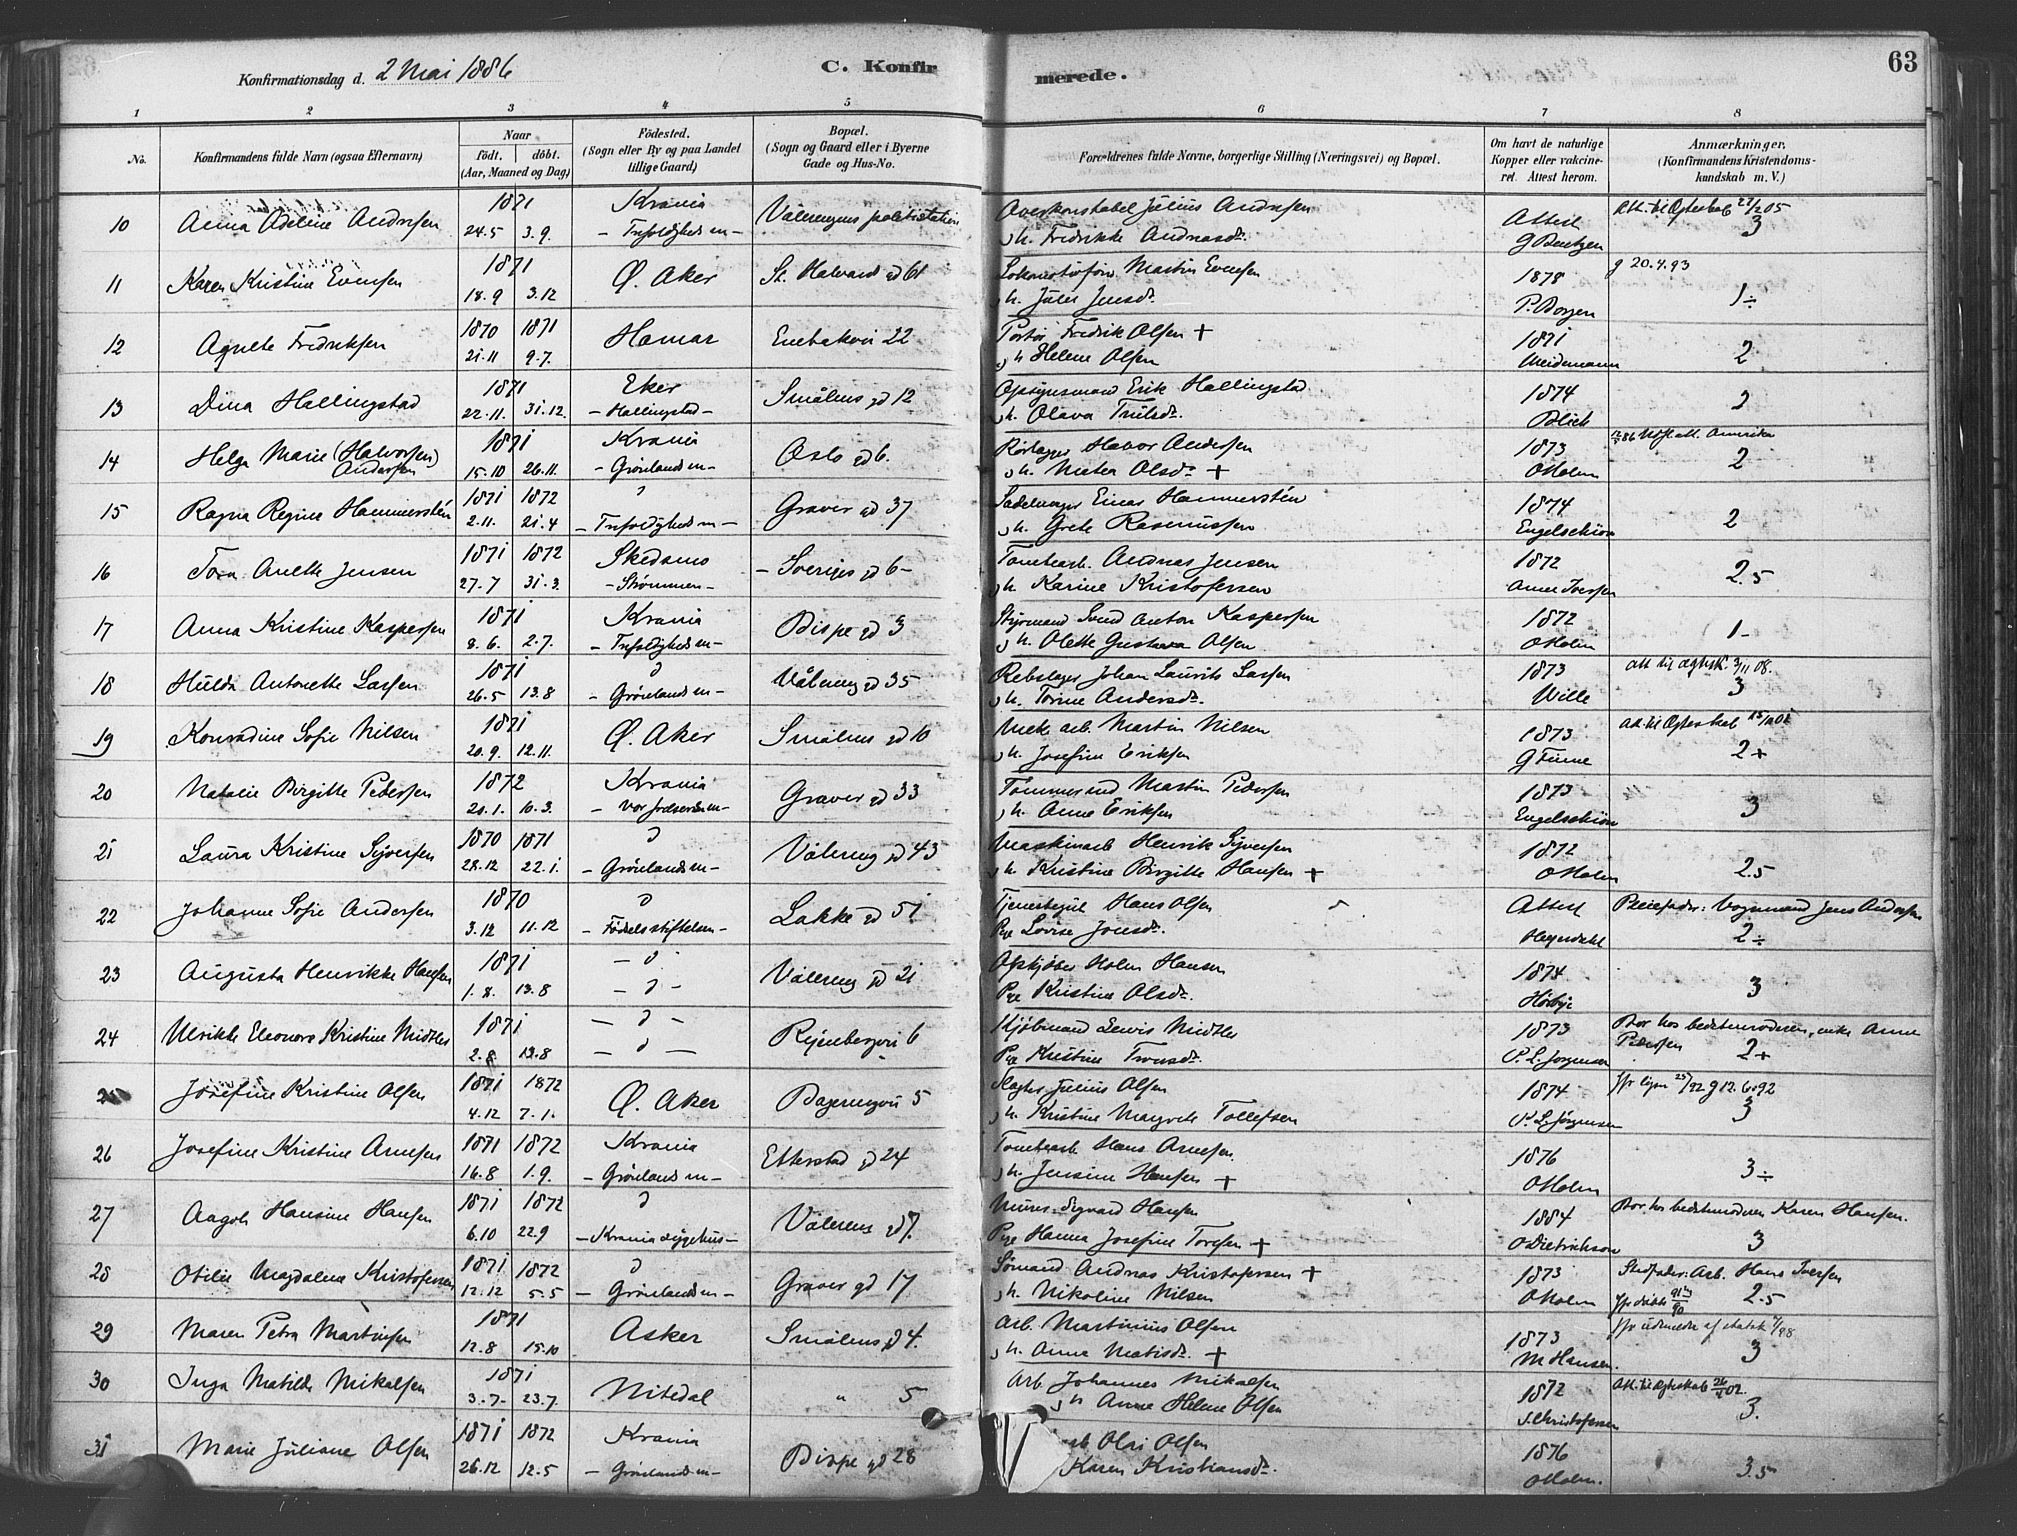 63
Konfirmationsdag d. 2 Mai 1886
C. Konfirmerede.
1 2 3 4 5 6 7 8
No.
Konfirmandens fulde Navn (ogsaa Efternavn)
Naar
födt. döbt.
(Aar, Maaned og Dag)
Födested.
(Sogn eller By og paa Landet tillige Gaard)
Bopæl.
(Sogn og Gaard eller i Byerne Gade og Hus-No.
Forældrenes fulde Navne, borgerlige Stilling (Næringsvei) og Bopæl.
Om havt de naturlige Kopper eller vakcineret. Attest herom.
Anmærkninger.
(Konfirmandens Kristendomskundskab m. V.)
10 Anna Adeline Andresen 1871 24.5 3.9. Krania - Trefoldigheds m - Vålerengens politistation Overkonstabel Julius Andresen h. Fredrikke Andreasd. Attest G Bentzen Att. til Ægteskab 27/2 05 3
11 Karen Kristine Evensen 1871 18.9 3.12 Ø. Aker St. Halvards gd 61 Lokomotivförer Martin Evensen h. Julie Jensd. 1878 P. Borgen g 20.4.93 1÷
12 Agnete Fredriksen 1870 1871 21.11 9.7. Hamar Enebakvei 22 Portör Fredrik Olsen + h Helene Olsen 1871 Meidemann 2
13 Dina Hallingstad 1871 22.11. 31.12. Eker - Hallingstad - Smålens gd 12 Opsynsmand Erik Hallingstad h. Olava Trulsd. 1874 2
14 Helga Marie (Halvorsen) Andersen 1871 15.10 26.11. Krania - Grönlands m - Oslo gd 6. Halvor Andersen h. Olsd. + 1873 O Holm Amerika 2
15 Ragna Regine Hammerstén 1871 1872 2.11. 21.4 - Trefoldigheds m - Graver gd 37 Sadelmager Einar Hammerstén h. Grete Rasmussen 1874 Engelschiøn 2
16 Tora Anette Jensen 1871 1872 27.7 31.3. Skedsmo - Strømmen - - Sveriges gd 6 - Tomtearb. Andreas Jensen h Karine Kristofersen 1872 Anne Iversen 2.5
17 Anna Kristine Kaspersen 1871 8.6. 2.7. Krania - Trefoldigheds m - Bispe gd 3 Styrmand Svend Anton Kaspersen h. Olette Gustava Olsen 1872 O Holm 1-
18 Hulda Antonette Larsen 1871 26.5 13.8 - Grönlands m - Våleren gd 35 Rebslager Johan Laurits Larsen h. Torine Andersd. 1873 Wille att til ægtesk. 3/11 08. 3
19 Konradine Sofie Nilsen 1871 20.9. 12.11. Ø. Aker Smålens gd 10 Mek. arb. Martin Nilsen h. Josefine Eriksen 1873 G Finne Att. til Ægteskab 2+
20 Natalie Birgitte Pedersen 1872 20.1. 10.3. Krania - Vor frelsers m - Graver gd 33 Tömmermd Martin Pedersen h. Anne Eriksen 1873 Engelschiøn 3
21 Laura Kristine Syversen 1870 1871 28.12 22.1. - Grönlands m - Våleren gd 43 Maskinarb Henrik Syversen h Kristine Birgitte Hansen + 1872 O Holm 2.5
22 Johanne Sofie Andersen 1870 3.12 11.12 - Födselsstiftelsen - Lakke gd 51 Hans Olsen Pge Lovise Jonsd. Attest Heyerdahl Pleiefader: Vognmand Jens Andersen 2÷
23 Augusta Henrikke Hansen 1871 1.8. 13.8 Våleren gd 21 Opkjøber Holm Hansen Pge Kristine Olsd. 1874 3
24 Ulrikke Eleonore Kristine Midtlee 1871 2.8. 13.8 Ryenbergvei 6 Kjøbmand Lewis Midtlee Pge Kristine 1873 P. L. Jørgensen Bor hos bedstemoderen, enke Anne Pedersen 2+
Josefine Kristine Olsen 1871 1872 4.12 7.1. Ø. Aker 5 Slagter Julius Olsen h Kristine Margrete Tollefsen 1874 P. L. Jørgensen g 12.6.92 3
26 Josefine Kristine Arnesen 1871 1872 16.8 1.9. Krania - Grönlands m - Etterstad gd 24 Tomtearb Hans Arnesen h. Jensine Hansen + 1876 O Holm 3÷
27 Aagot Hansine Hansen 1871 1872 6.10 22.9 - Krania sygehus - Våleren gd 7. Murer Sigvard Hansen Pge Hanna Josefine Toresen + 1884 O Dietrichson Bor hos bedstemoderen Karen Hansen. 3
28 Otilie Magdalene Kristofersen 1871 1872 12.12 5.5 - Grönlands m - Graver gd 17 Sömand Andreas Kristofersen + h. Nikoline Nilsen 1873 O Holm Stedfader: Arb. Hans Iversen 2.5
29 Maren Petra Martinsen 1871 12.8 15.10 Asker Smålens gd 4. Arb. Martinius Olsen h. Anne Matisd. + 1873 M Hansen. 3
30 Inga Matilde Mikalsen 1871 3.7. 23.7. Nitedal " 5 Arb. Johannes Mikalsen h Anne Helene Olsen 1872 S. Christofersen Att. til Ægteskab 26/4 02. 3.
31 Marie Juliane Olsen 1871 1872 26.12 12.5 Krania - Grönlands m - Bispe gd 28 Olsen Karen Kristiansd. 1876 O Holm. 3.5